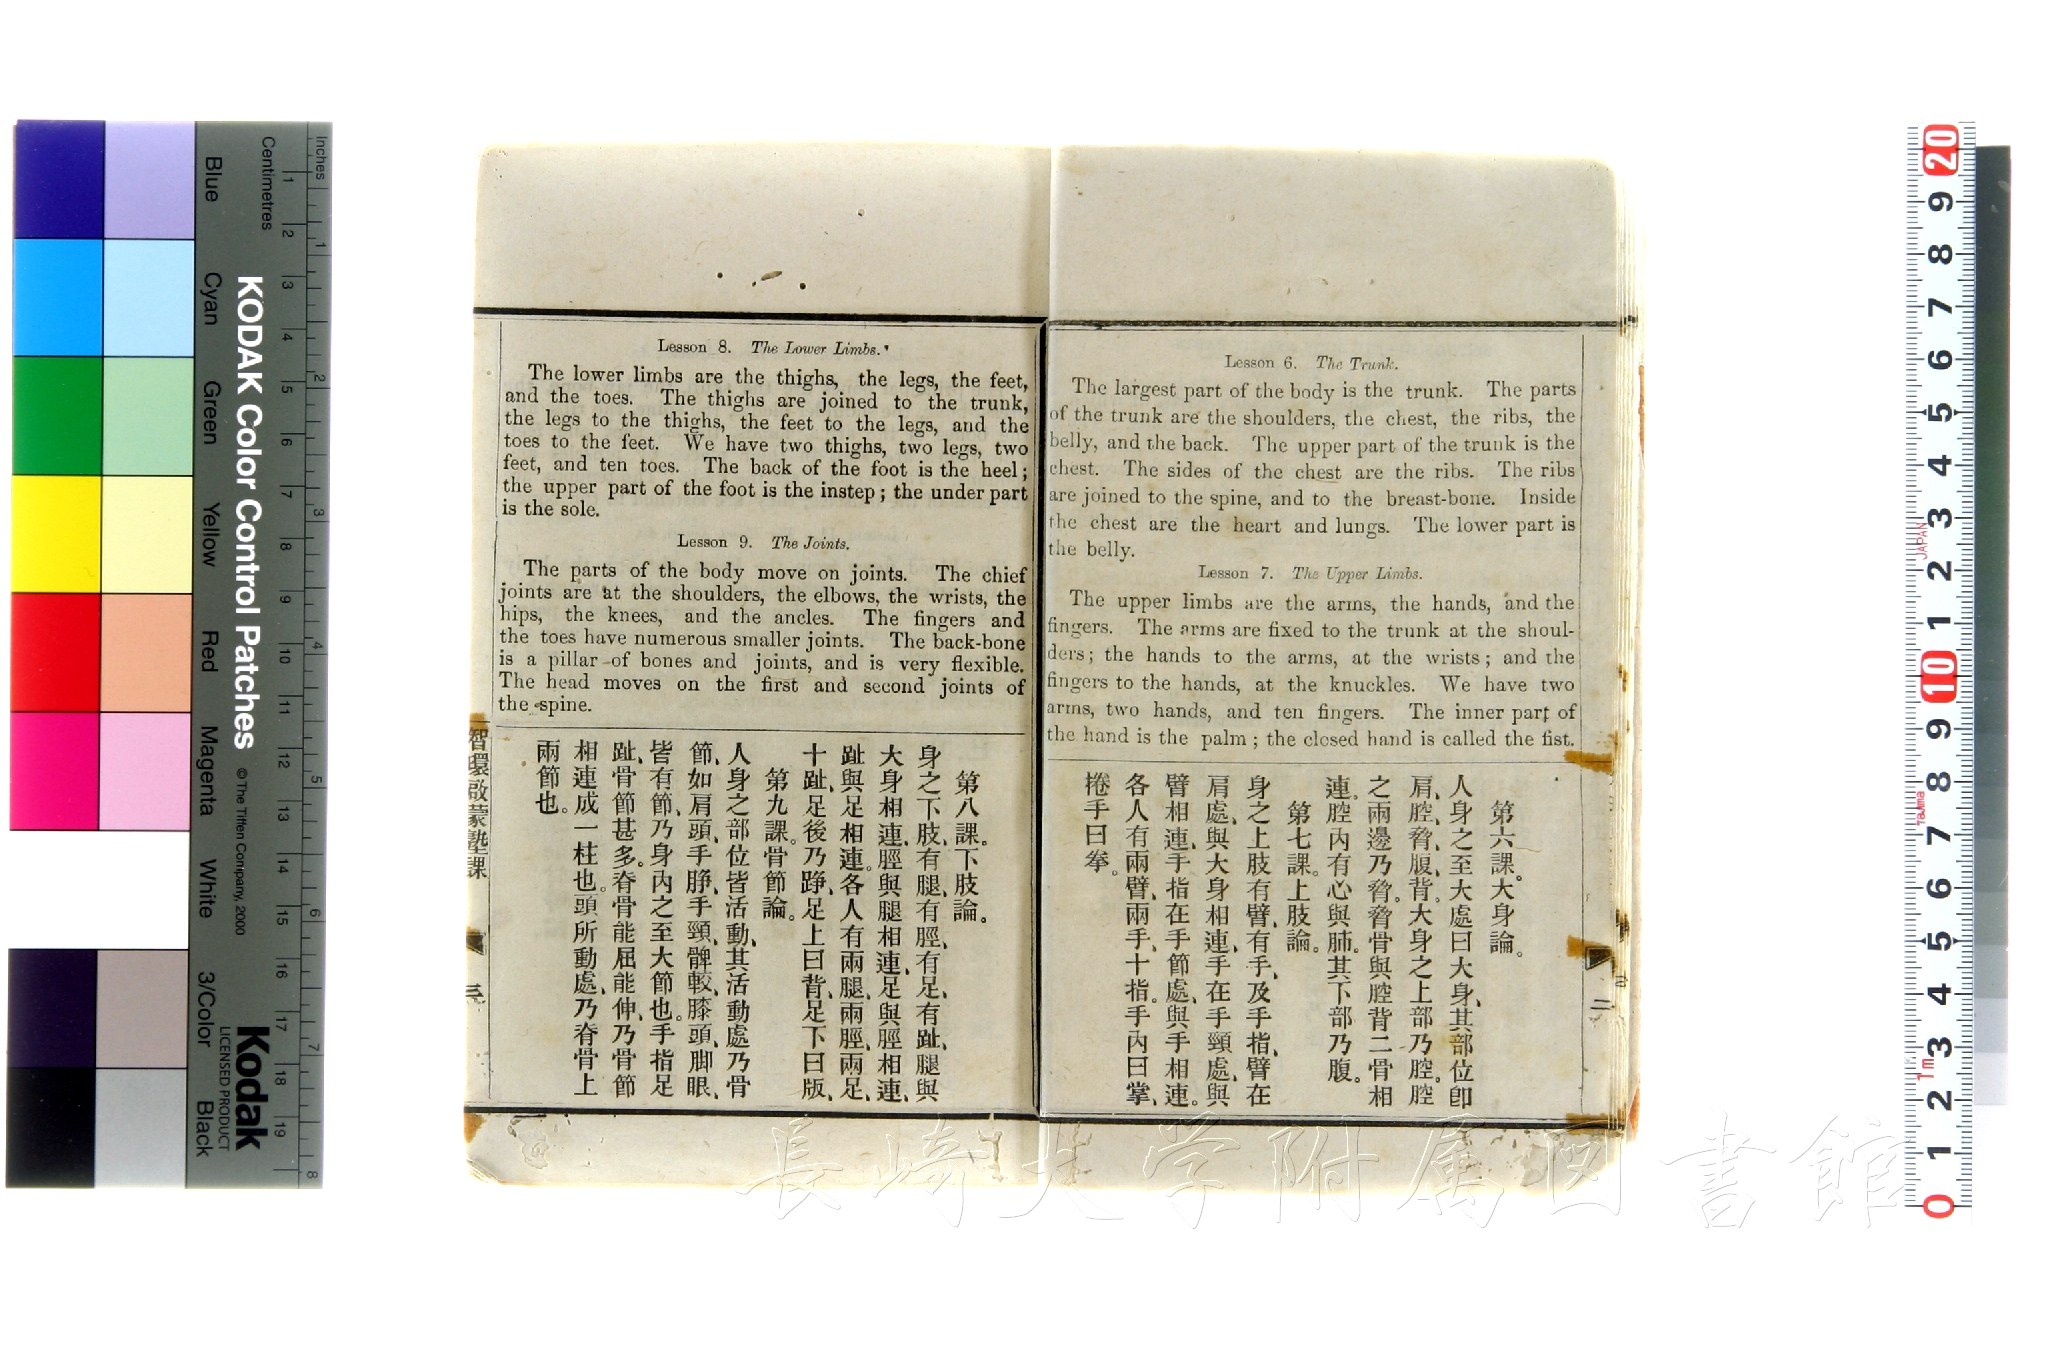 Lesson 6. The Trunk.
The largest part of the body is the trunk. The parts
of the trunk are the shoulders, the chest, the ribs, the
belly, and the back. The upper part of the trunk is the
chest. The sides of the chest are the ribs. The ribs
are joined to the spine, and to the breast-bone. Inside
the chest are the heart and lungs. The lower part is
the belly.
Lesson 7. The Upper Limbs.
The upper limbs are the arms, the hands, and the
fingers. The arms are fixed to the trunk at the shoul-
ders; the hands to the arms, at the wrists; and the
fingers to the hands, at the knuckles. We have two
arms, two hands, and ten fingers. The inner part of
the hand is the palm; the closed hand is called the fist.
第六課。大身論。
人身之至大處曰大身、其部位卽
肩、腔、脅、腹、背。大身之上部乃腔。腔
之兩邊乃脅。脅骨與腔背二骨相
連。腔內有心與肺。其下部乃腹。
第七課。上肢論。
身之上肢有臂、有手、及手指、臂在
肩處、與大身相連、手在手頸處、與
臂相連、手指在手節處、與手相連。
各人有兩臂、兩手、十指。手內曰掌、
捲手曰拳。
二
Lesson 8. The Lower Limbs.
The lower limbs are the thighs, the legs, the feet,
and the toes. The thighs are joined to the trunk,
the legs to the thighs, the feet to the legs, and the
toes to the feet. We have two thighs, two legs, two
feet, and ten toes. The back of the foot is the heel;
the upper part of the foot is the instep; the under part
is the sole.
Lesson 9. The Joints.
The parts of the body move on joints. The chief
joints are at the shoulders, the elbows, the wrists, the
hips, the knees, and the ancles. The fingers and
the toes have numerous smaller joints. The back-bone
is a pillar of bones and joints, and is very flexible.
The head moves on the first and second joints of
the spine.
第八課。下肢論。
身之下肢、有腿、有脛、有足、有趾、腿與
大身相連、脛與腿相連、足與脛相連、
趾與足相連。各人有兩腿、兩脛、兩足、
十趾、足後乃踭、足上曰背、足下曰版、
第九課。骨節論。
人身之部位皆活動、其活動處乃骨
節、如肩頭、手睜、手頸、髀較、膝頭、脚眼、
皆有節、乃身內之至大節也。手指足
趾、骨節甚多。脊骨能屈能伸、乃骨節
相連成一柱也。頭所動處、乃脊骨上
兩節也。
智環啟蒙塾課
三
KODAK Color Control Patches
© The Tiffen Company, 2000
Kodak
LICENSED PRODUCT
Inches
1 2 3 4 5 6 7 8
Centimetres
1 2 3 4 5 6 7 8 9 10 11 12 13 14 15 16 17 18 19
Blue Cyan Green Yellow Red Magenta White 3/Color Black
20 9 8 7 6 5 4 3 2 1 10 9 8 7 6 5 4 3 2 1 0
JAPAN
Tajima
1m
長崎大学附属図書館